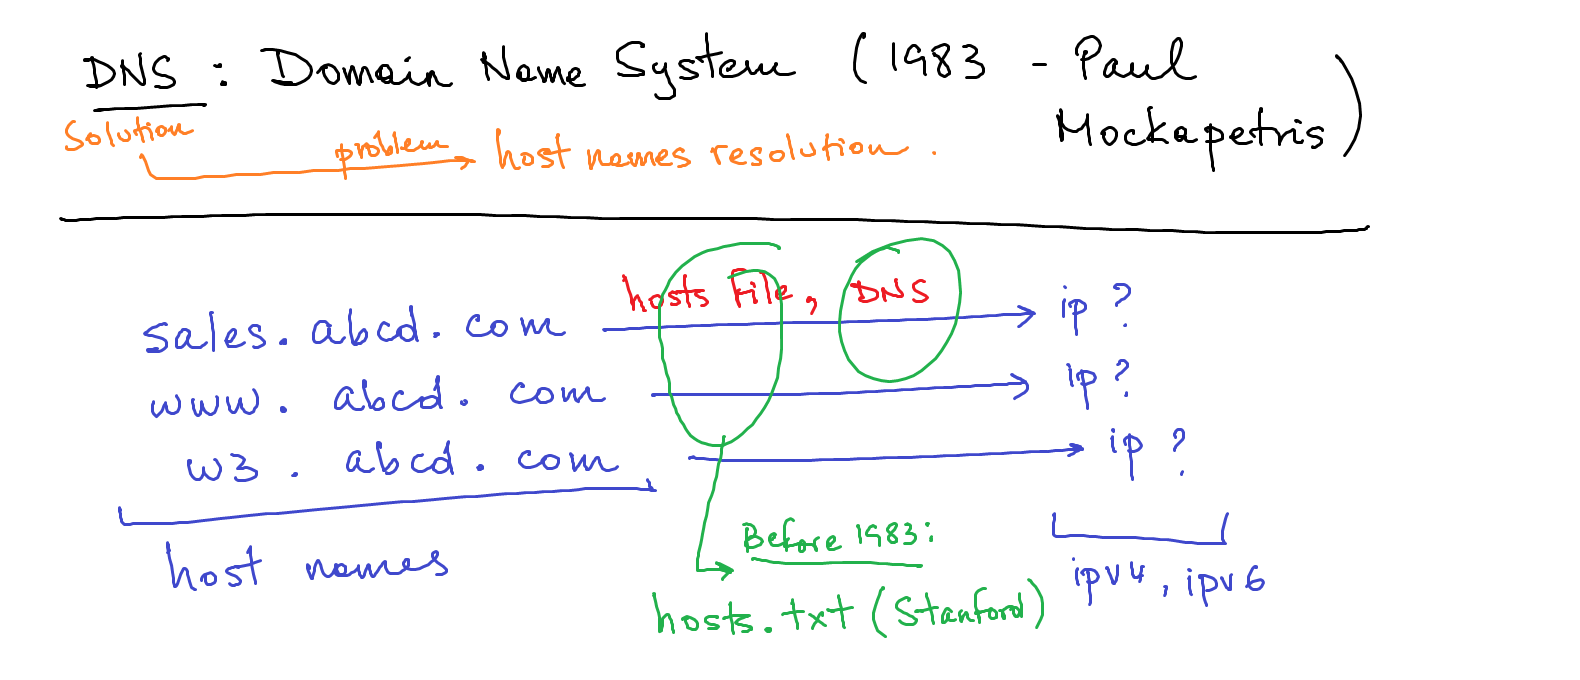 DNS : Domain Name System (1983 - Paul
Mockapetris)
Solution
problem
host names resolution .
hosts File, DNS
sales. abcd. com
ip ?
www. abcd. com
ip ?
w3 . abcd. com
ip ?
host names
Before 1983:
ipv4, ipv6
hosts.txt (Stanford)